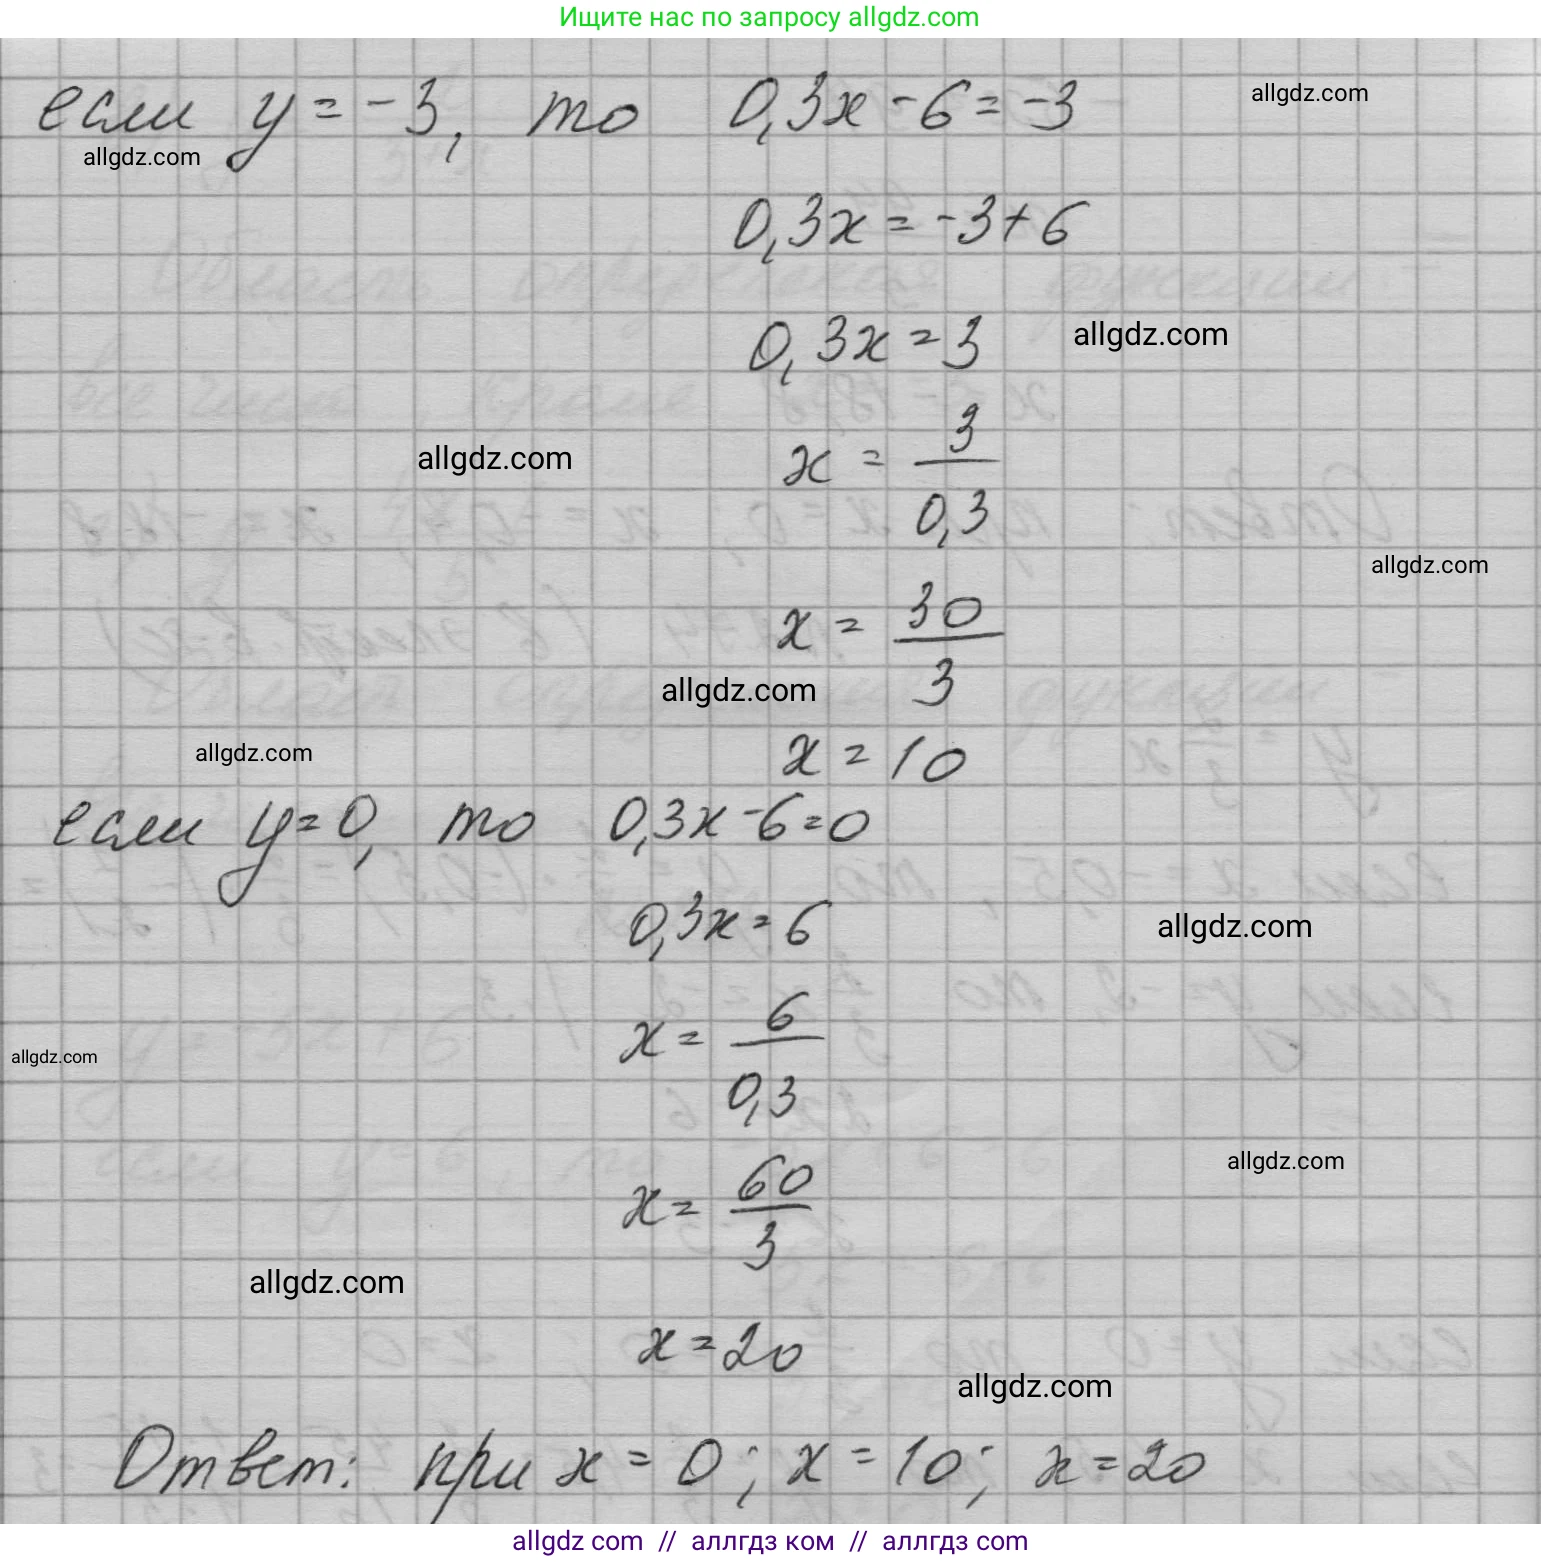 Ищите нас по запросу allgdz.com
если y = -3, то 0,3x - 6 = -3
allgdz.com
allgdz.com
0,3x = -3 + 6
0,3x = 3
allgdz.com
x = 3/0,3
allgdz.com
allgdz.com
x = 30/3
allgdz.com
allgdz.com
x = 10
если y = 0, то 0,3x - 6 = 0
0,3x = 6
allgdz.com
x = 6/0,3
allgdz.com
allgdz.com
x = 60/3
allgdz.com
x = 20
allgdz.com
Ответ: при x = 0; x = 10; x = 20
allgdz.com // аллгдз ком // аллгдз com